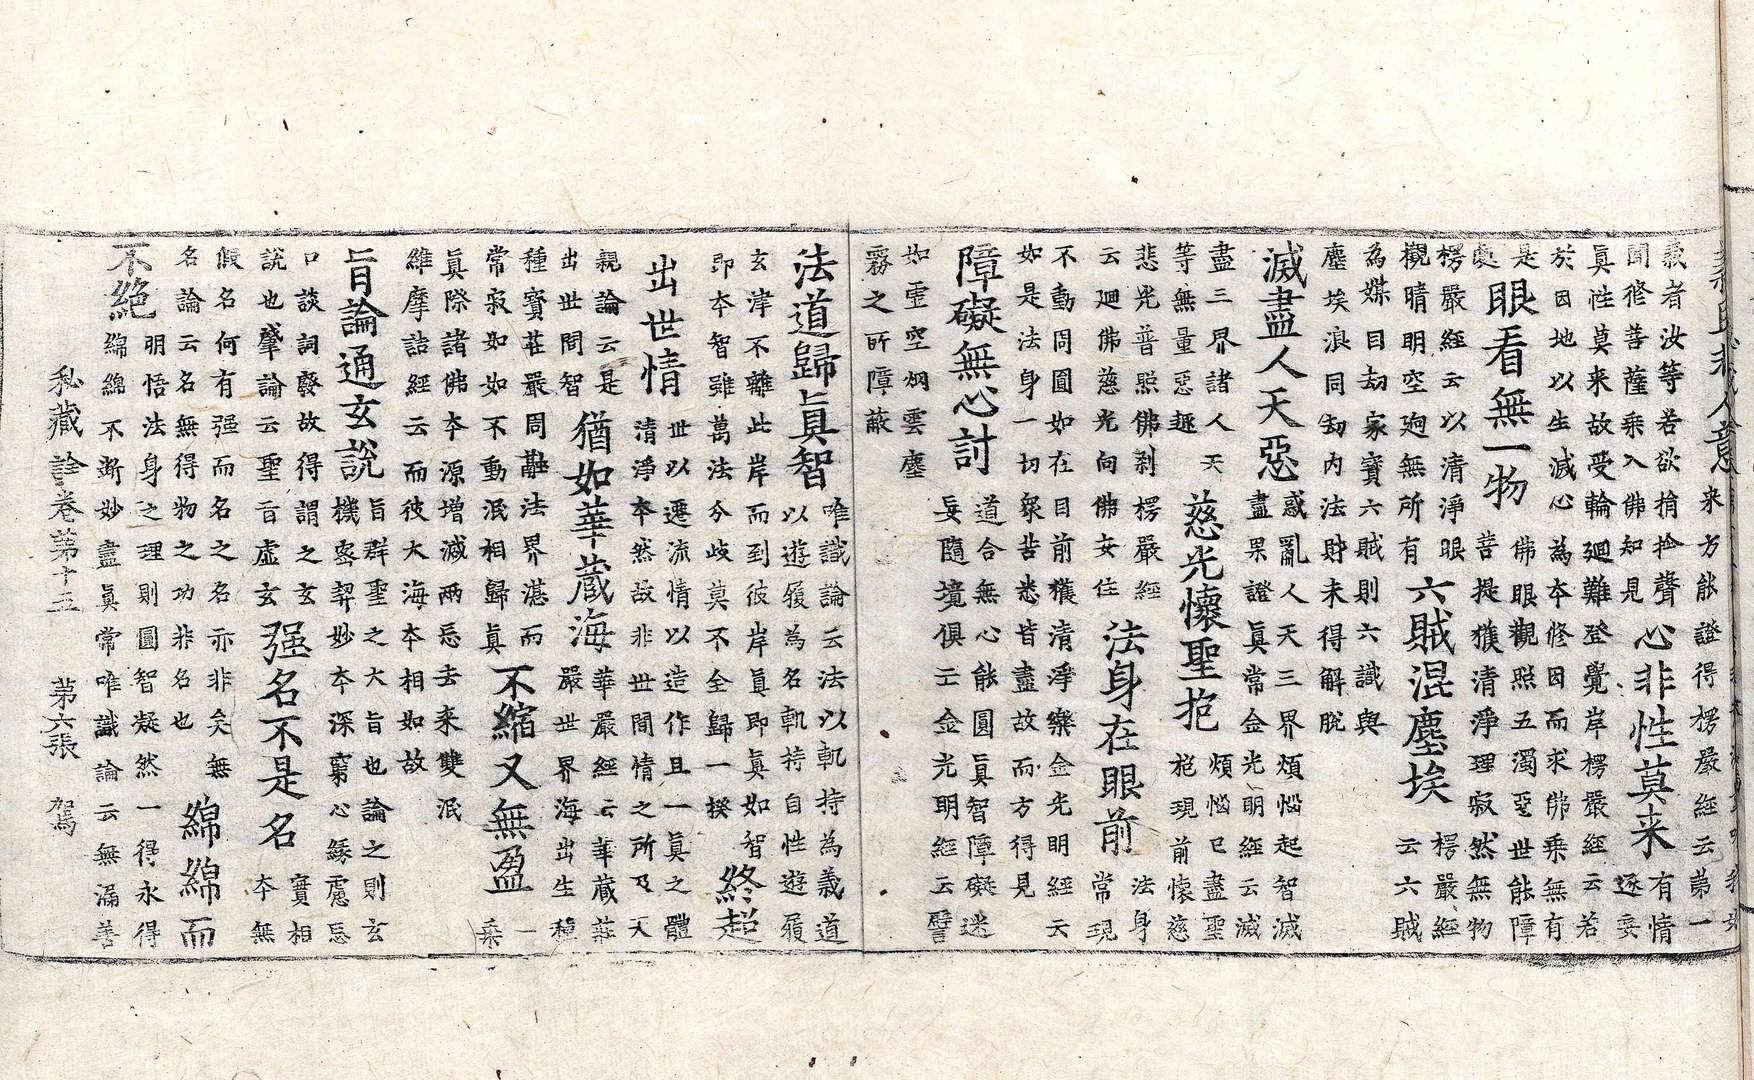 来方能證得楞嚴經云第一
義者汝等若欲捐捨聲
聞修菩薩乘入佛知見
心非性莫来
有情
逐妄
眞性莫来故受輪廻難登覺岸楞嚴經云若
於因地以生滅心為夲修因而求佛乘無有
是
處
眼看無一物
佛眼觀照五濁惡世能障
菩提獲清淨理寂然無物
楞嚴經云以清淨眼
觀晴明空逈無所有
六賊混塵埃
楞嚴經
云六賊
為媒目劫家寶六賊則六識與
塵埃浪同劫内法財未得解脫
滅盡人天惡
惑亂人天三界煩惱起智滅
盡果證眞常金光明經云滅
盡三界諸人天
等無量惡趣
慈光懷聖抱
煩惱已盡聖
抱現前懷慈
悲光普照佛刹楞嚴經
云廻佛慈光向佛安住
法身在眼前
法身
常現
不動同圓如在目前獲清淨樂金光明經云
如是法身一切衆苦悉皆盡故而方得見
障礙無心討
道合無心能圓眞智障礙迷
妄隨境俱亡金光明經云譬
如虛空烟雲塵
霧之所障蔽
法道歸眞智
唯識論云法以軌持為義道
以遊履為名軌持自性遊履
玄津不離此岸而到彼岸眞即眞如智
即夲智雖萬法分歧莫不全歸一揆
終超
出世情
世以遷流情以造作且一眞之體
清淨夲然故非世間情之所及天
親論云是
出世間智
猶如華藏海
華嚴經云華藏莊
嚴世界海出生種
種寶莊嚴周融法界湛而
常寂如如不動泯相歸眞
不縮又無盈
一
乘
眞際諸佛夲源增減兩忘去来雙泯
維摩詰經云而彼大海夲相如故
旨論通玄説
旨群聖之大旨也論之則玄
機密契妙夲深窮心緣慮忘
口談詞廢故得謂之玄
説也肇論云聖旨虛玄
强名不是名
實相
夲無
假名何有强而名之名亦非矣無
名論云名無得物之功非名也
綿綿而
不絶
明悟法身之理則圓智凝然一得永得
綿綿不漸妙盡眞常唯識論云無漏善
私藏詮卷第十五　第六張　駕